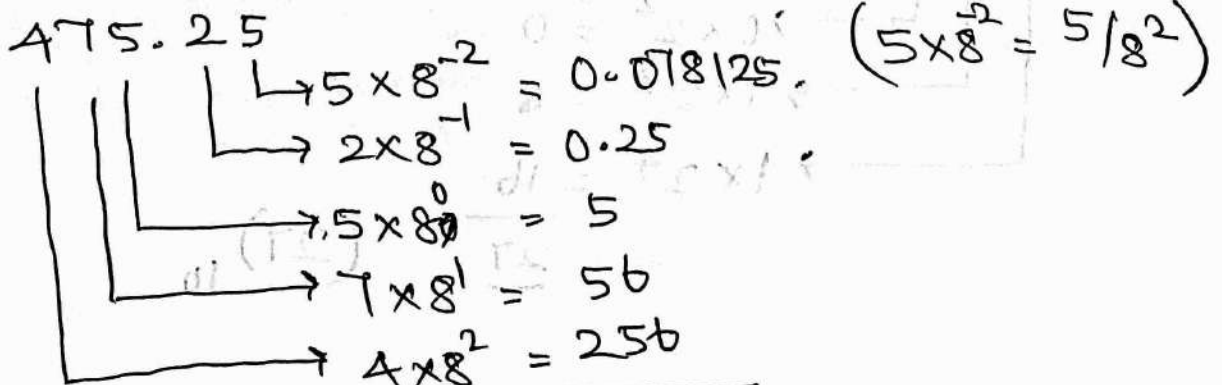 475.25
5×8⁻² = 0.078125. (5×8⁻² = 5/8²)
2×8⁻¹ = 0.25
5×8⁰ = 5
7×8¹ = 56
4×8² = 256